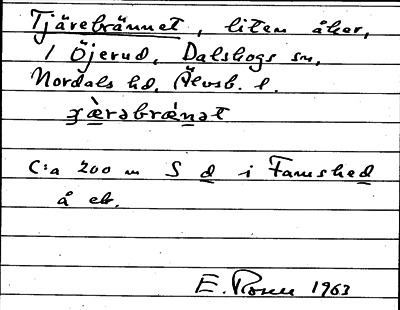 Tjärebrännet, liten åker,
1 Öjerud, Dalskogs sn,
Nordals hd, Älvsb. l.
ɟæ̀rəbrǽnət
C:a 200 m S d i Famshed
å eb.
E. Rosen 1963